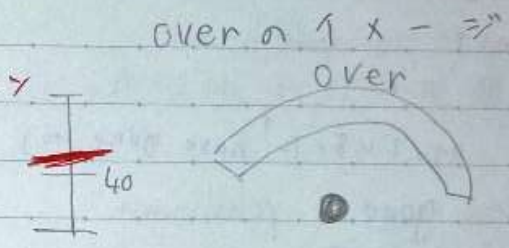 over のイメージ
over
40